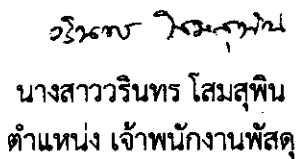 วรินทร โสมสุพิน
นางสาววรินทร โสมสุพิน
ตำแหน่ง เจ้าพนักงานพัสดุ